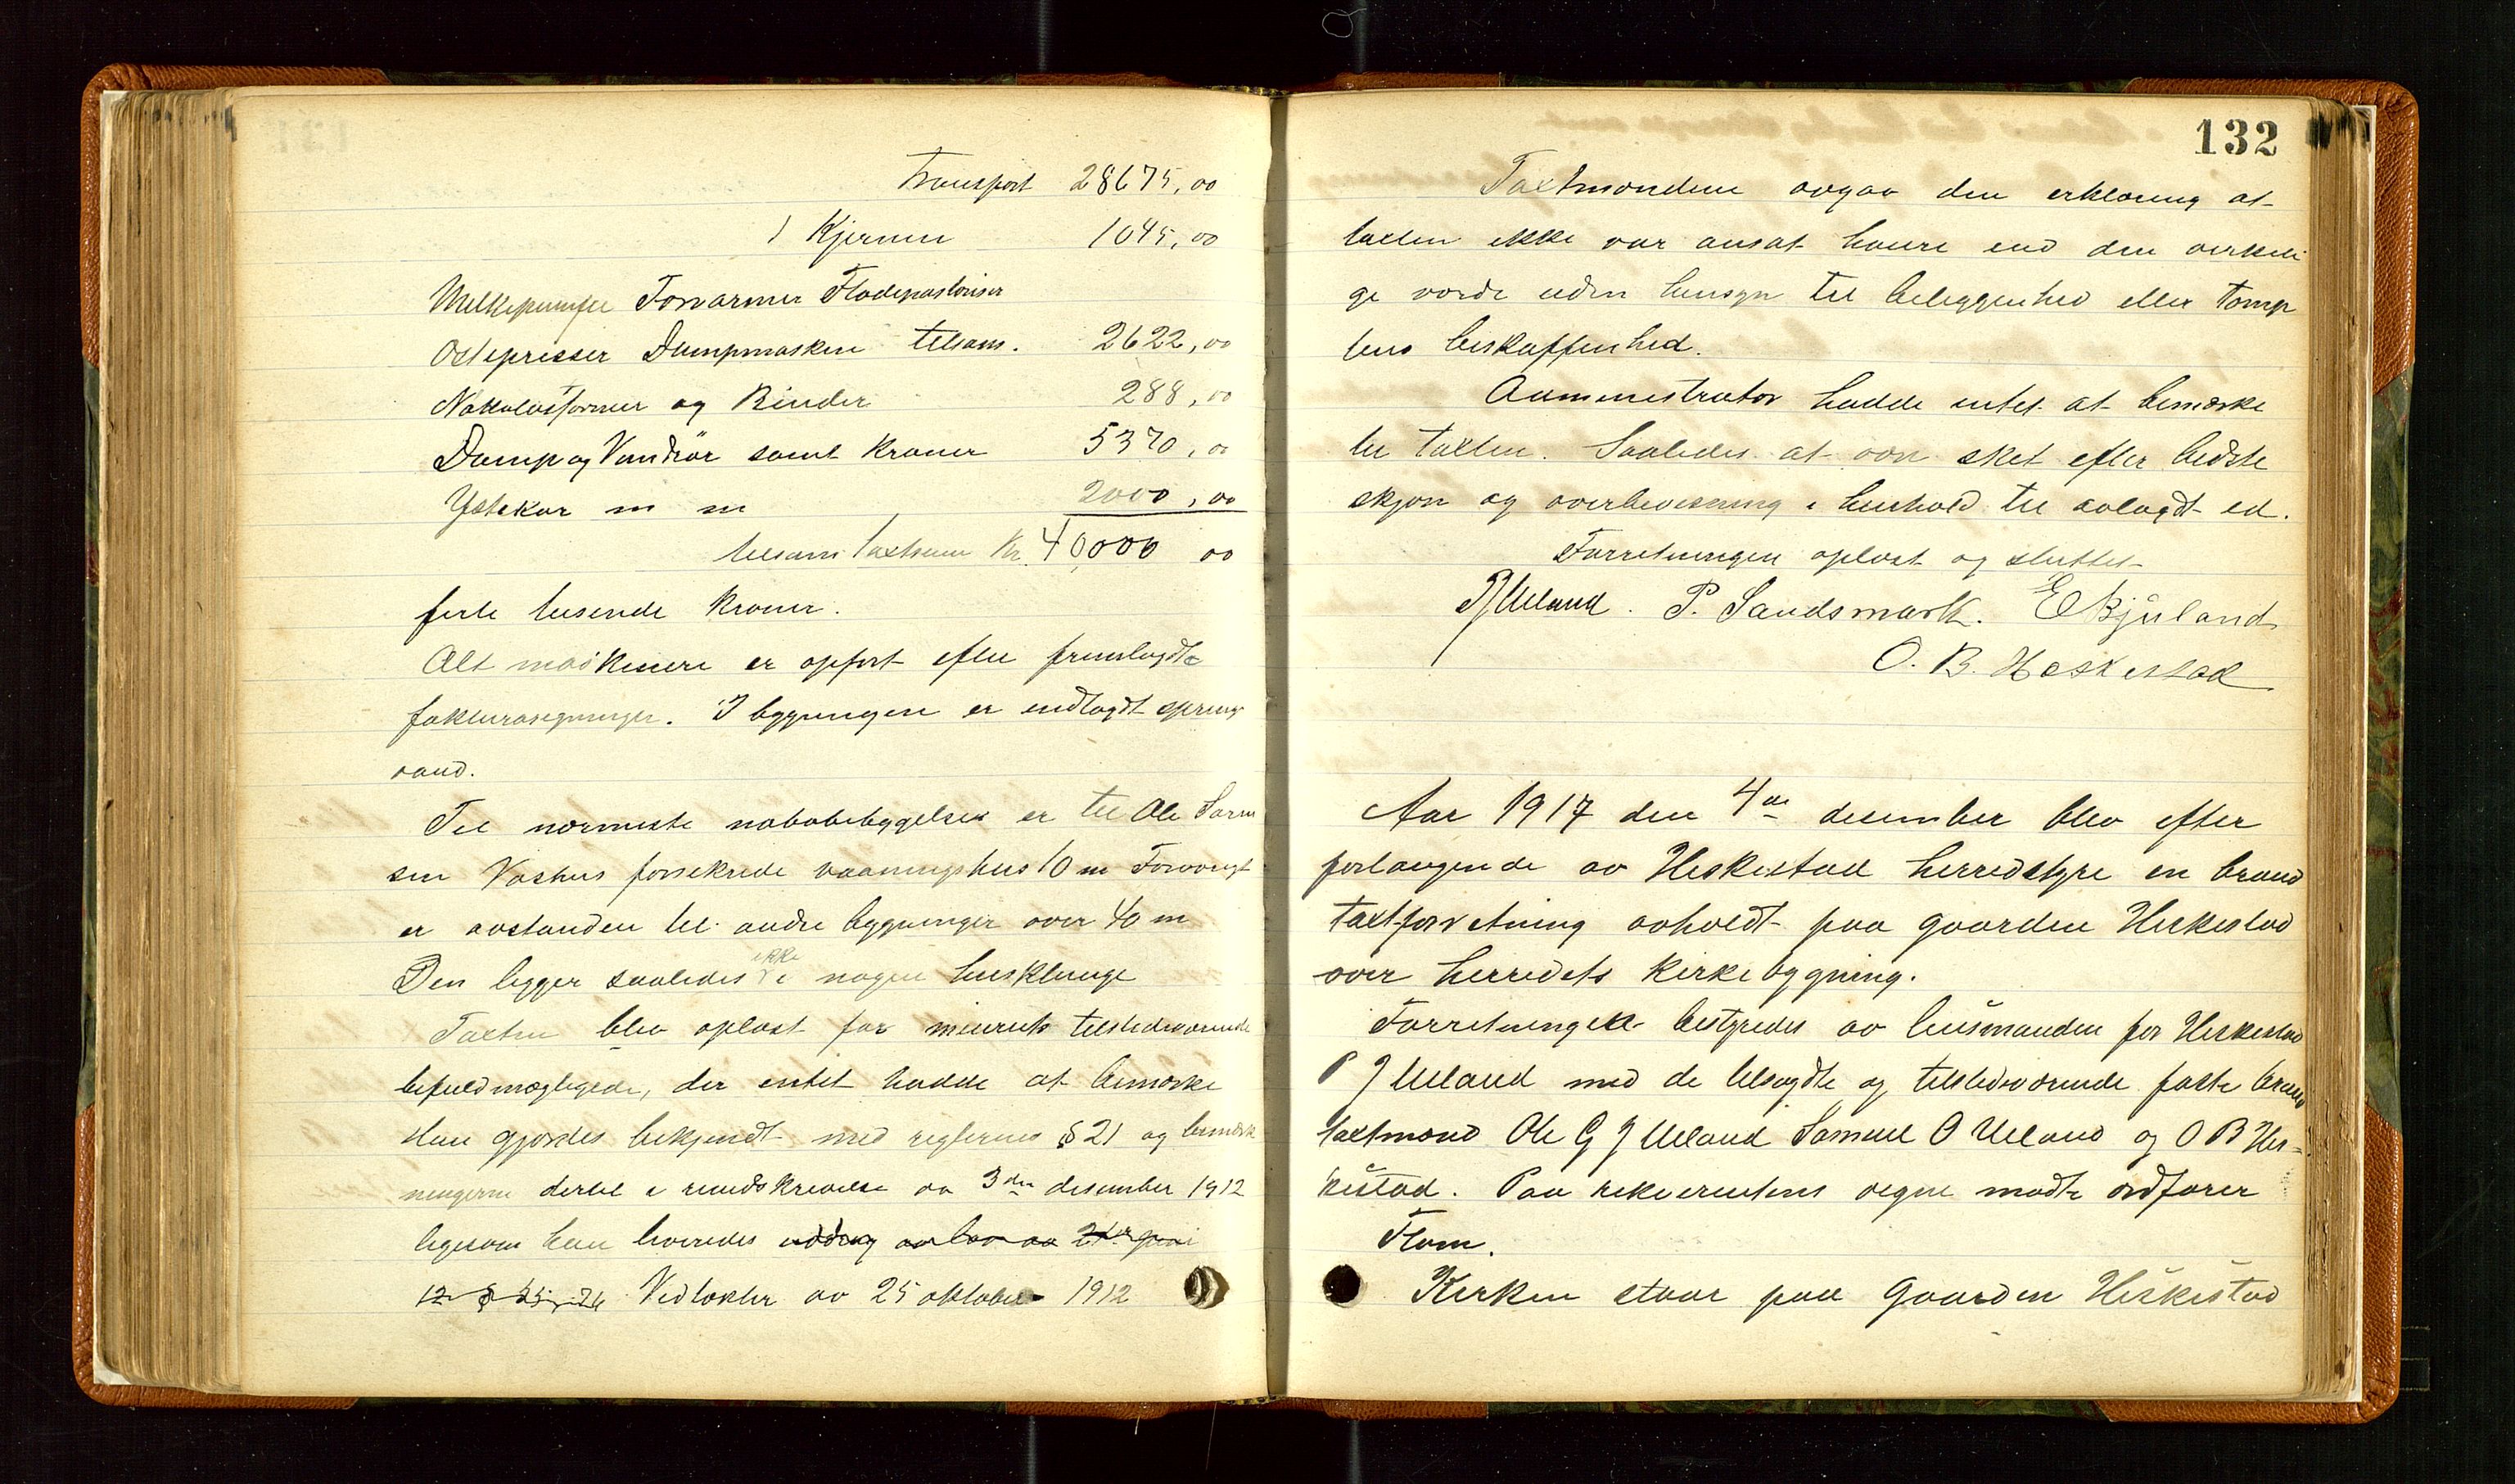 Transport 28675,00
1 Kjernen 1045,00
Melkepumpe Forvarmer Flødepastørisør
Ostepresser Dampmaskin tilsam. 2622,00
Nøkkelostformer og Binder 288,00
Damp og Vandrör samt kraner 5370,00
Ystekar m m 2000,00
tilsam taxtsum Kr. 40,000 00
firti tusende kroner.
Alt maskineri er opført efter fremlagdte
fakturaregninger. I bygningen er indlagdt spring
vand.
Til nærmeste nabobebygelse er til Ole Søren
sen Vashus forsekrede vaaningshus 10 m Forøvrigt
er avstanden til andre bygninger over 40 m
Den ligger saaledes ikke i nogen husklynge
Taxten blev oplæst for meieriets tilstedeværende
befuldmægtigede, der intet hadde at bemærke
Han gjordes bekjendt med reglernes § 21 og bemærk
ningerne dertil i rundskrivelse av 3die desember 1912
ligesom han leveredes uddrag av lov av 21de juni
12 § 25, 26 Vedtækter av 25 oktober 1912
132
Taxtmændene avgav den erklæring at
taxten ikke var ansat høiere end den virkeli
ge værdi uden hensyn til beliggenhed eller tomp
tens beskaffenhed.
Administrator hadde intet at bemærke
til taxten. Saaledes at være sket efter bedste
skjøn og overbevisning i henhold til avlagdt ed.
Forretningen oplæst og sluttet
P J Ueland. P. Sandsmark. E Bjuland
O. B. Heskestad
Aar 1917 den 4de desember blev efter
forlangende av Heskestad herredstyre en brand
taxtforretning avholdt paa gaarden Heskestad
over herredets kirkebygning.
Forretningen bestyredes av lensmanden for Heskestad
P J Ueland med de tilsagdte og tilstedeværende faste brand
taxtmænd Ole G J Ueland Samuel O Ueland og O B Hes-
kestad. Paa rekvirentens vegne mødte ordfører
Flom.
Kirken staar paa Gaarden Heskestad